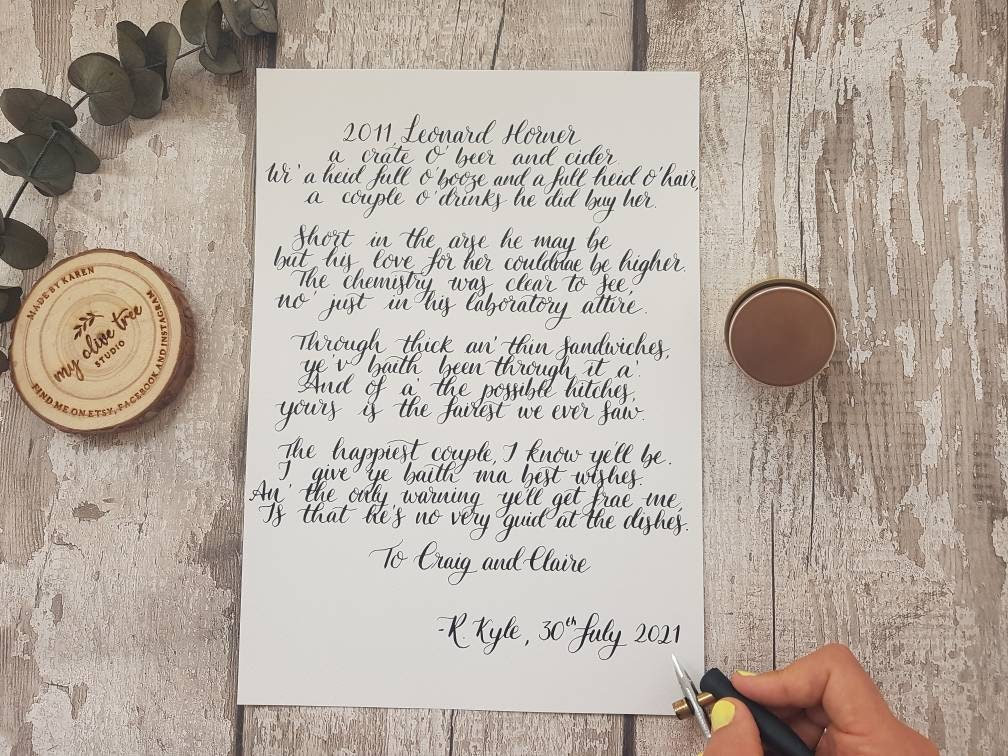 2011, Leonard Horner
a crate o' beer and cider.
Wi' a heid full o' booze and a full heid o' hair,
a couple o' drinks he did buy her.
Short in the arse he may be
but his love for her couldnae be higher.
The chemistry was clear to see,
no' just in his laboratory attire.
Through thick an' thin sandwiches,
ye'v baith been through it a'.
And of a' the possible hitches,
yours is the fairest we ever saw.
The happiest couple, I know ye'll be.
I give ye baith ma best wishes.
An' the only warning ye'll get frae me,
Is that he's no very guid at the dishes.
To Craig and Claire
-R. Kyle, 30th July 2021
MADE BY KAREN
my olive tree
STUDIO
FIND ME ON ETSY, FACEBOOK AND INSTAGRAM